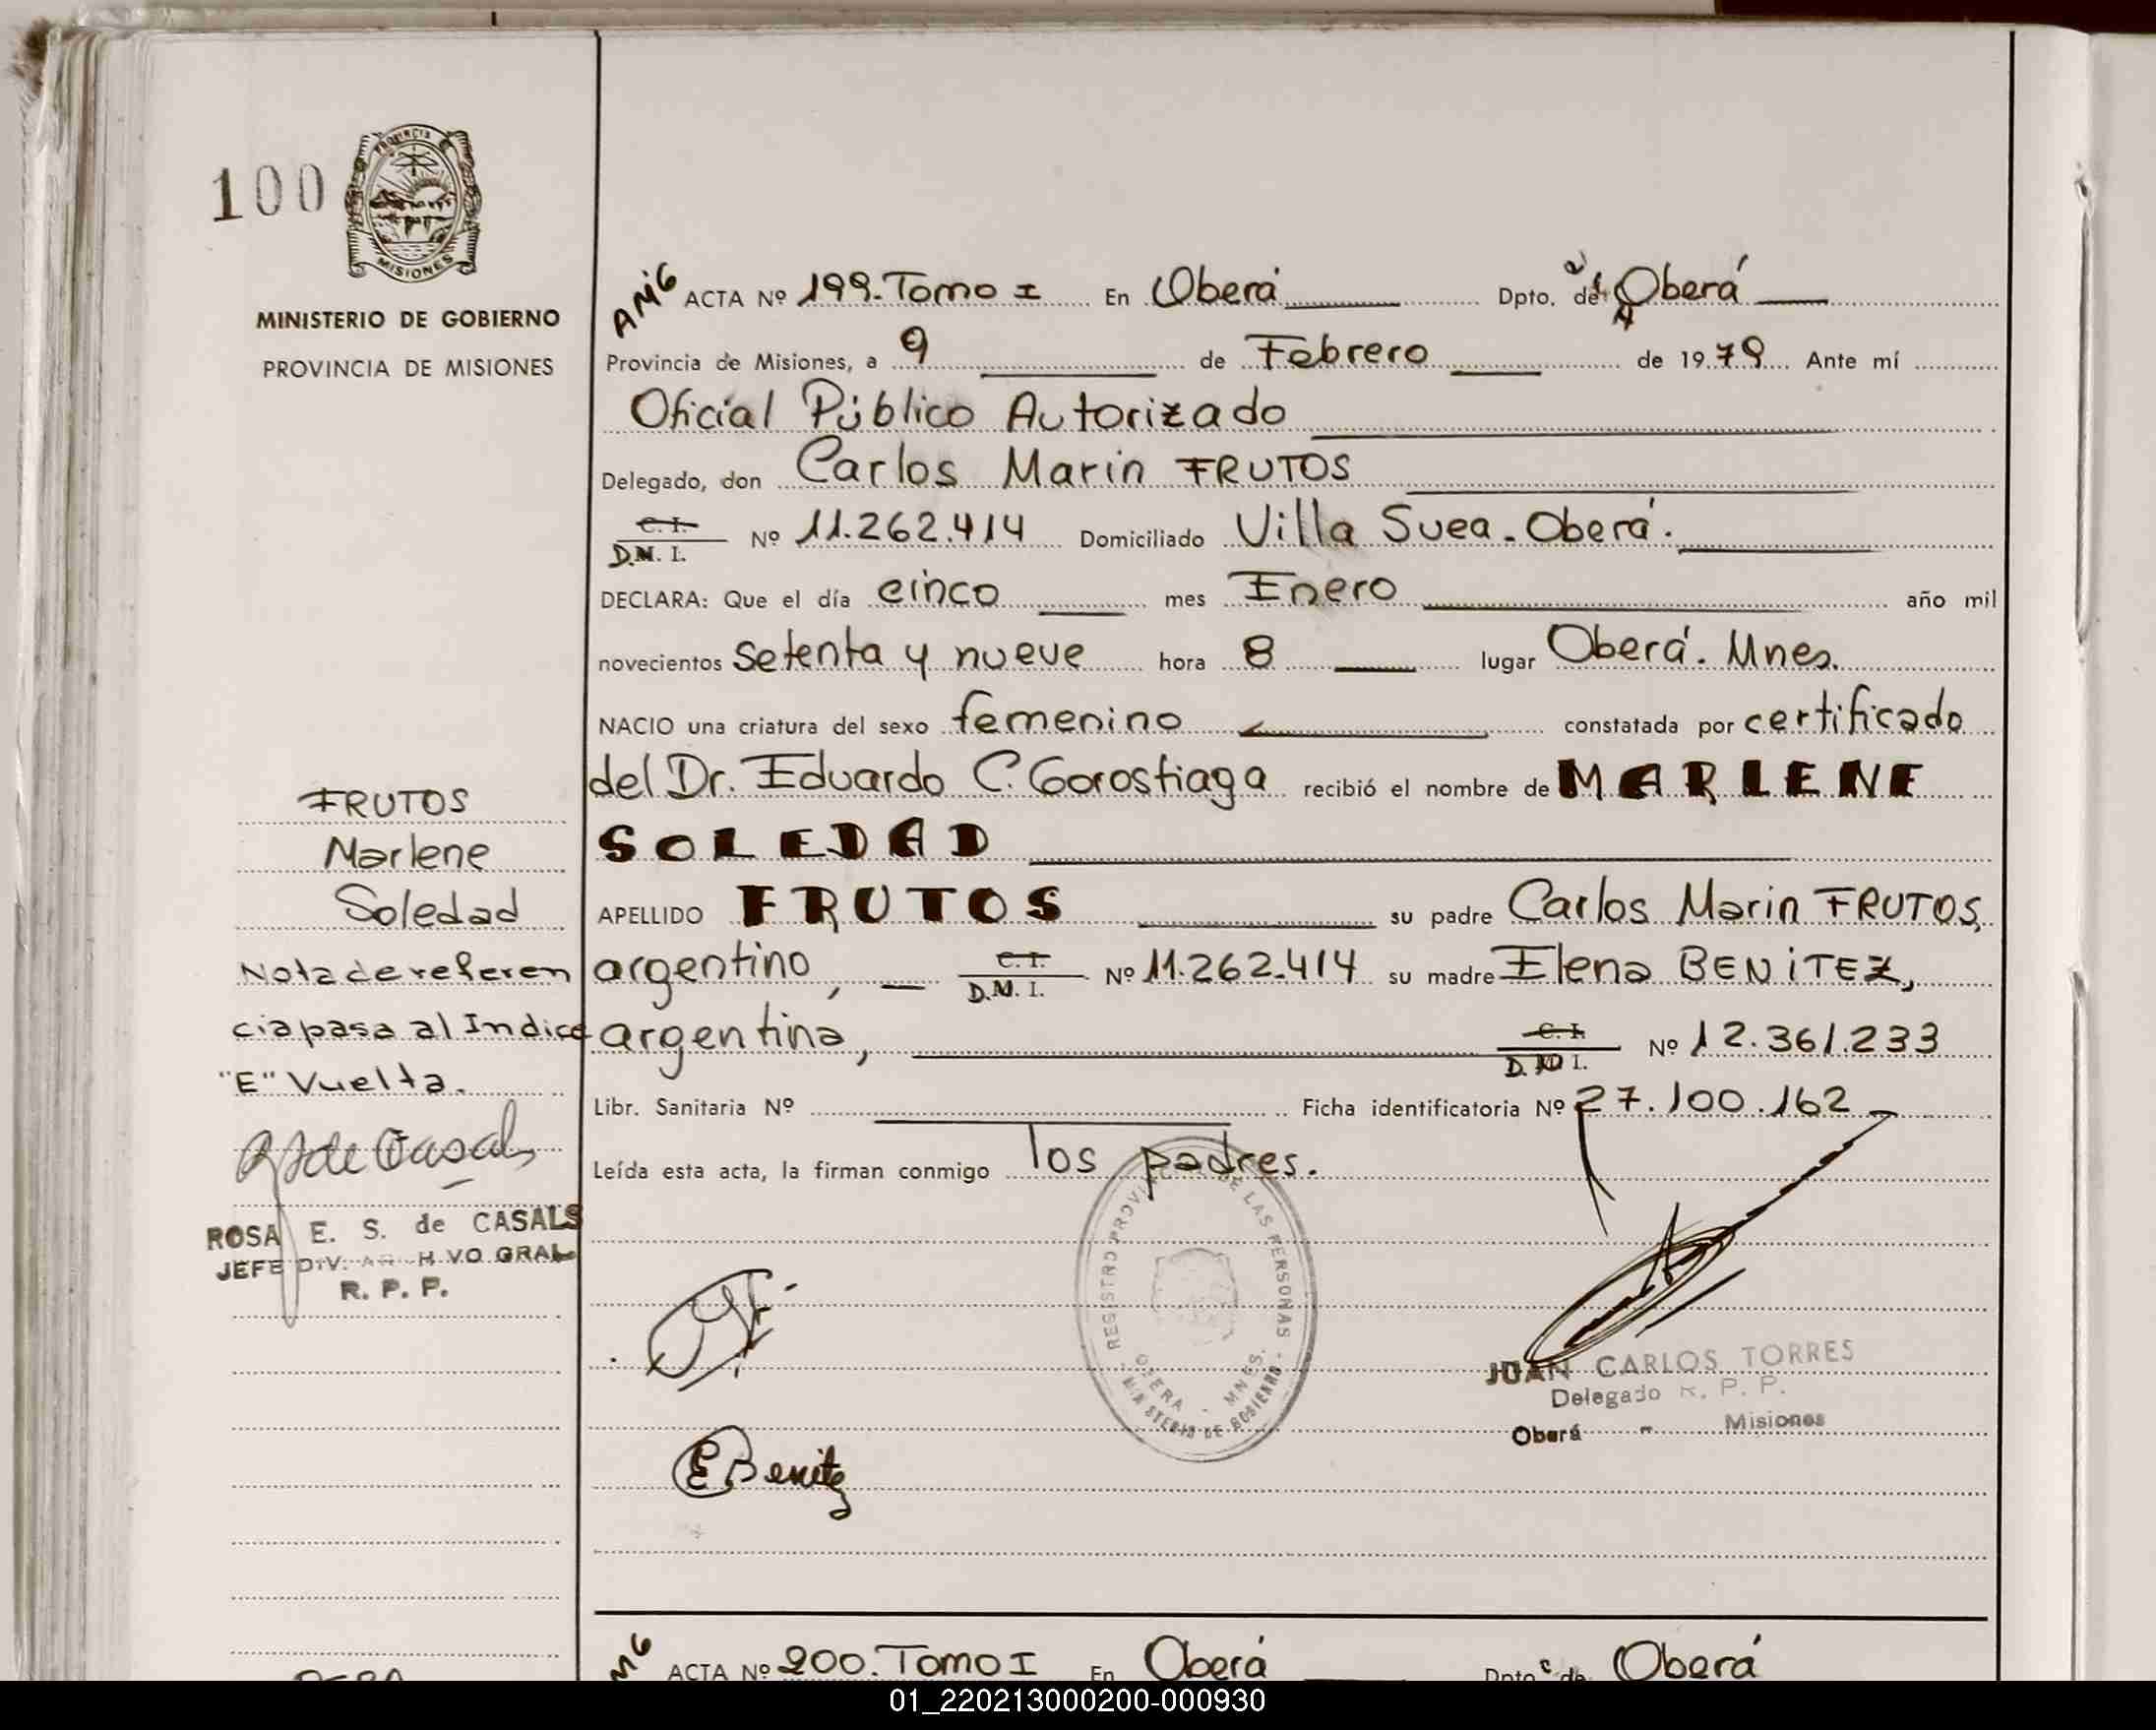 100
PROVINCIA
MISIONES
MINISTERIO DE GOBIERNO
PROVINCIA DE MISIONES
ACTA Nº 199. Tomo I En Oberá Dpto. de Oberá
Provincia de Misiones, a 9 de Febrero de 1979 Ante mí
Oficial Público Autorizado
Delegado, don Carlos Marin FRUTOS
C. I.
D.N. I. Nº 11.262.414 Domiciliado Villa Suea. Oberá.
DECLARA: Que el día cinco mes Enero año mil
novecientos setenta y nueve hora 8 lugar Oberá. Mnes.
NACIO una criatura del sexo femenino constatada por certificado
del Dr. Eduardo C. Gorostiaga recibió el nombre de MARLENE
SOLEDAD
APELLIDO FRUTOS su padre Carlos Marin FRUTOS,
argentino, C. I. D.N. I. Nº 11.262.414 su madre Elena BENITEZ,
argentina, C. I. D.N. I. Nº 12.361.233
Libr. Sanitaria Nº Ficha identificatoria Nº 27.100.162
Leída esta acta, la firman conmigo los padres.
FRUTOS
Marlene
Soledad
Nota de referen
cia pasa al Indice
"E" Vuelta.
R S de Casals
ROSA E. S. de CASALS
JEFE DIV. ARCHIVO GRAL
R. P. P.
REGISTRO PROVINCIAL DE LAS PERSONAS
OBERA - MNES.
MINISTERIO DE GOBIERNO
EBenitez
JUAN CARLOS TORRES
Delegado R. P. P.
Oberá - Misiones
ACTA Nº 200. Tomo I En Oberá Dpto. de Oberá
01_220213000200-000930